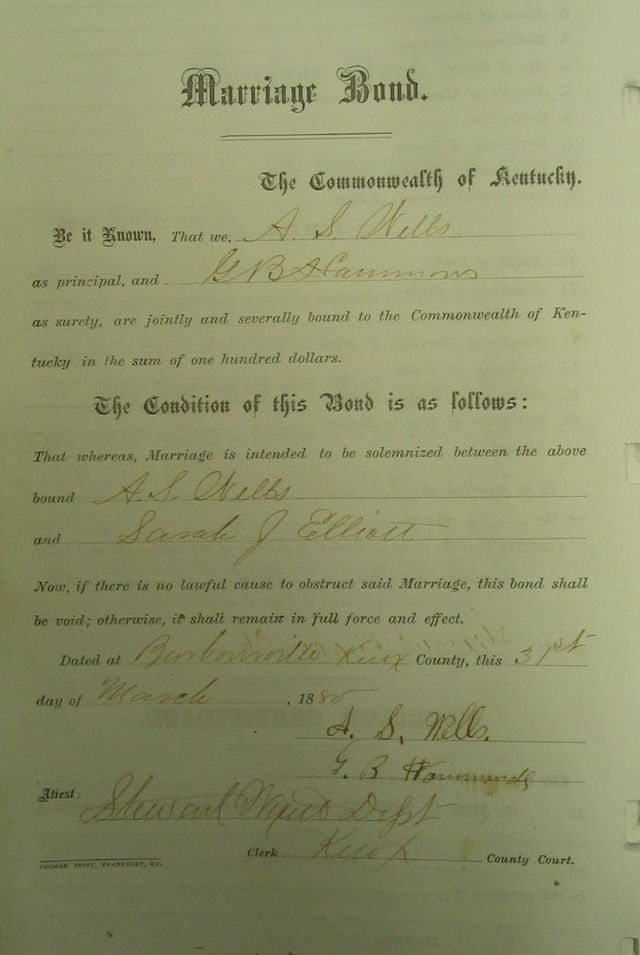 Marriage Bond.
The Commonwealth of Kentucky.
Be it Known, That we, A. S. Wells
as principal, and G B Hammons
as surety, are jointly and severally bound to the Commonwealth of Ken-
tucky in the sum of one hundred dollars.
The Condition of this Bond is as follows:
That whereas, Marriage is intended to be solemnized between the above
bound A. S. Wells
and Sarah J Elliott
Now, if there is no lawful cause to obstruct said Marriage, this bond shall
be void; otherwise, it shall remain in full force and effect.
Dated at Barbourville Knox County, this 31st
day of March, 1880
A. S. Wells.
G. B Hammonds
Attest: Stewart
Clerk Knox County Court.
YEOMAN PRINT, FRANKFORT, KY.